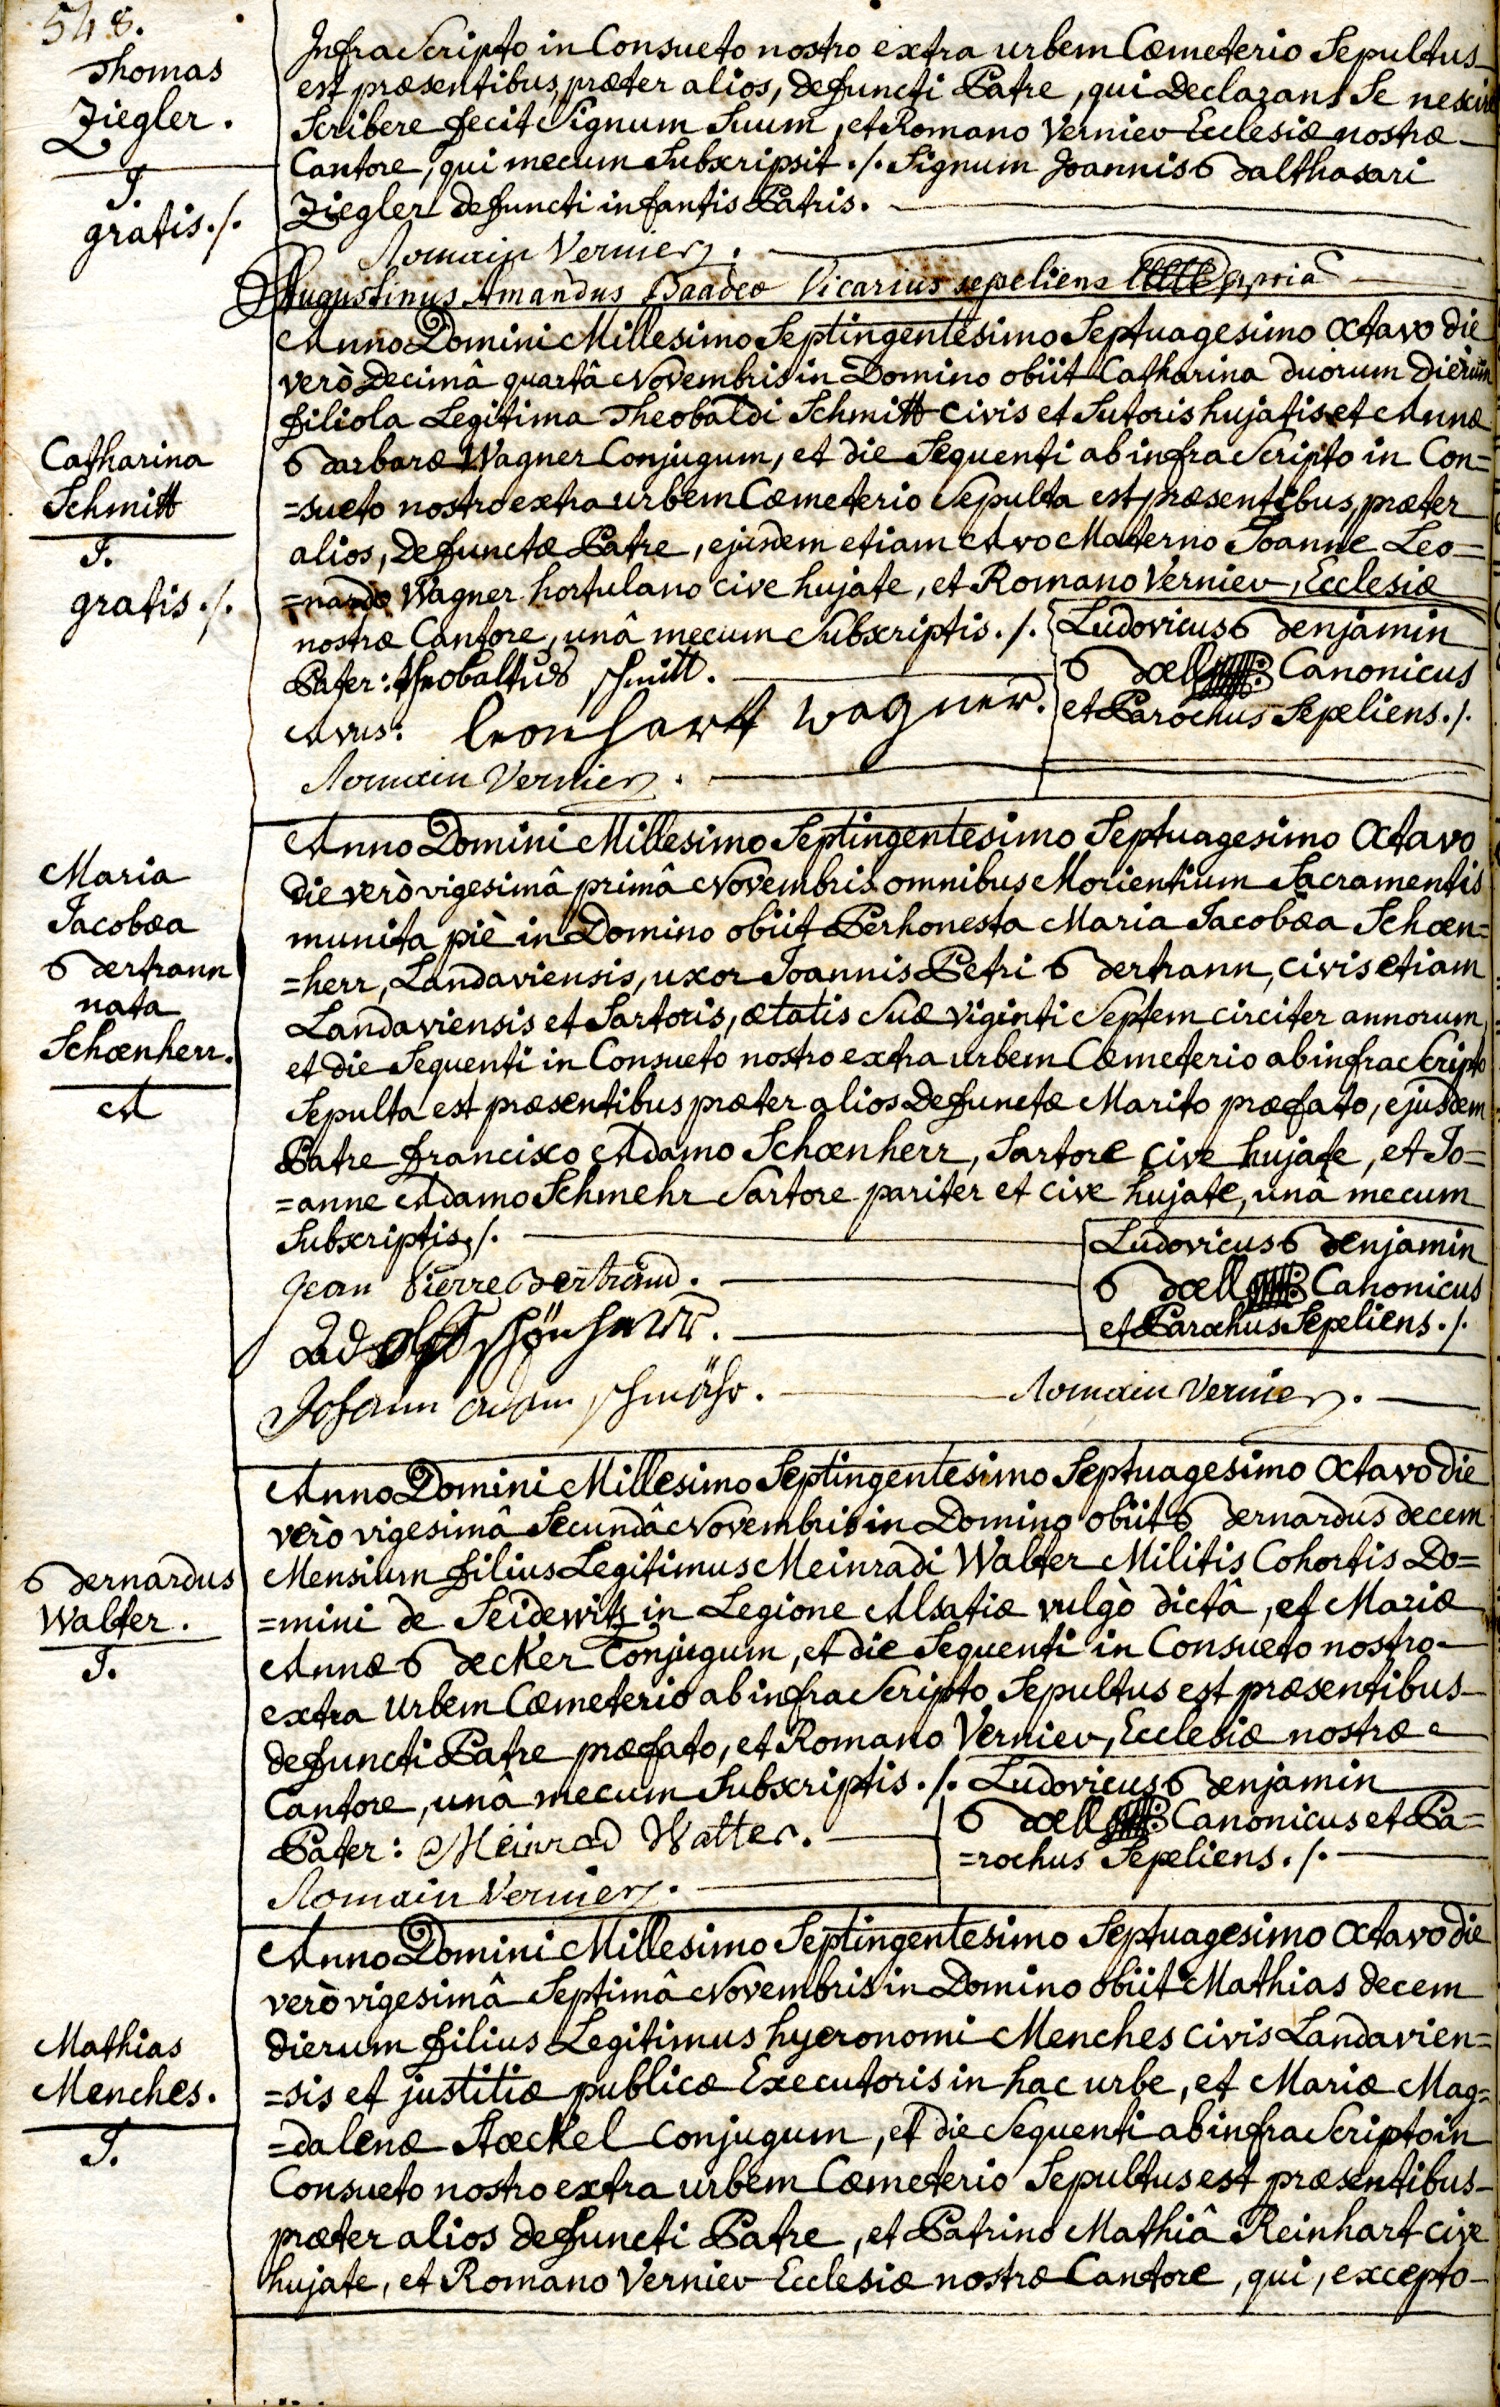 548.
Thomas
Ziegler.
I.
gratis./.
Infra Scripto in Consueto nostro extra urbem Cœmeterio Sepultus
est præsentibus, præter alios, defuncti Patre, qui Declarans Se nescire
Scribere fecit Signum Suum, et Romano Vernier Ecclesiæ nostræ
Cantore, qui mecum Subscripsit ./. Signum Joannis Balthasari
Ziegler defuncti infantis Patris.
Romain Vernier.
Augustinus Amandus Baader Vicarius sepeliens ppriâ
Catharina
Schmitt
I.
gratis./.
Anno Domini Millesimo Septingentesimo Septuagesimo Octavo die
verò Decimâ quartâ Novembris in Domino obiit Catharina duorum dierum
filiola Legitima Theobaldi Schmitt civis et Sutoris hujatis et Annæ
Barbaræ Wagner Conjugum, et die Sequenti ab infra Scripto in Con=
=sueto nostro extra urbem Cœmeterio Sepulta est præsentibus, præter
alios, defunctæ Patre, ejusdem etiam Avo Materno Joanne Leo=
=nardo Wagner hortulano cive hujate, et Romano Vernier, Ecclesiæ
nostræ Cantore, unâ mecum Subscriptis ./.
Ludovicus Benjamin
Bœll Canonicus
et Parochus Sepeliens ./.
Pater: theobaltus schmitt.
Avus: leonhartt wagner.
Romain Vernier.
Maria
Jacobæa
Bertrann
nata
Schœnherr.
A
Anno Domini Millesimo Septingentesimo Septuagesimo Octavo
die verò vigesimâ primâ Novembris omnibus Morientium Sacramentis
munita piè in Domino obiit Perhonesta Maria Jacobæa Schœn=
=herr, Landaviensis, uxor Joannis Petri Bertrann, civis etiam
Landaviensis et Sartoris, ætatis Suæ viginti Septem circiter annorum,
et die Sequenti in Consueto nostro extra urbem Cœmeterio ab infra Scripto
Sepulta est præsentibus præter alios Defunctæ Marito præfato, ejusdem
Patre francisco Adamo Schœnherr, Sartore cive hujate, et Jo=
=anne Adamo Schmehr Sartore pariter et cive hujate, unâ mecum
Subscriptis ./.
Ludovicus Benjamin
Bœll Canonicus
et Parochus Sepeliens ./.
Jean Pierre Bertrand.
schönherr.
Johann adam schmöhr.
Romain Vernier.
Bernardus
Walter.
I.
Anno Domini Millesimo Septingentesimo Septuagesimo Octavo die
verò vigesimâ Secundâ Novembris in Domino obiit Bernardus decem
Mensium filius Legitimus Meinradi Walter Militis Cohortis Do=
=mini de Seidewitz in Legione Alsatiæ vulgò dictâ, et Mariæ
Annæ Becker Conjugum, et die Sequenti in Consueto nostro
extra Urbem Cœmeterio ab infra Scripto Sepultus est præsentibus
defuncti Patre præfato, et Romano Vernier, Ecclesiæ nostræ
Cantore, unâ mecum Subscriptis ./.
Ludovicus Benjamin
Bœll Canonicus et Pa=
=rochus Sepeliens ./.
Pater: Meinrad Walter.
Romain Vernier.
Mathias
Menches.
I.
Anno Domini Millesimo Septingentesimo Septuagesimo Octavo die
verò vigesimâ Septimâ Novembris in Domino obiit Mathias decem
dierum filius Legitimus hyeronomi Menches civis Landavien=
=sis et justitiæ publicæ Executoris in hac urbe, et Mariæ Mag=
=dalenæ Stœckel conjugum, et die Sequenti ab infra Scripto in
Consueto nostro extra urbem Cœmeterio Sepultus est præsentibus
præter alios defuncti Patre, et Patrino Mathiâ Reinhart cive
hujate, et Romano Vernier Ecclesiæ nostræ Cantore, qui, excepto